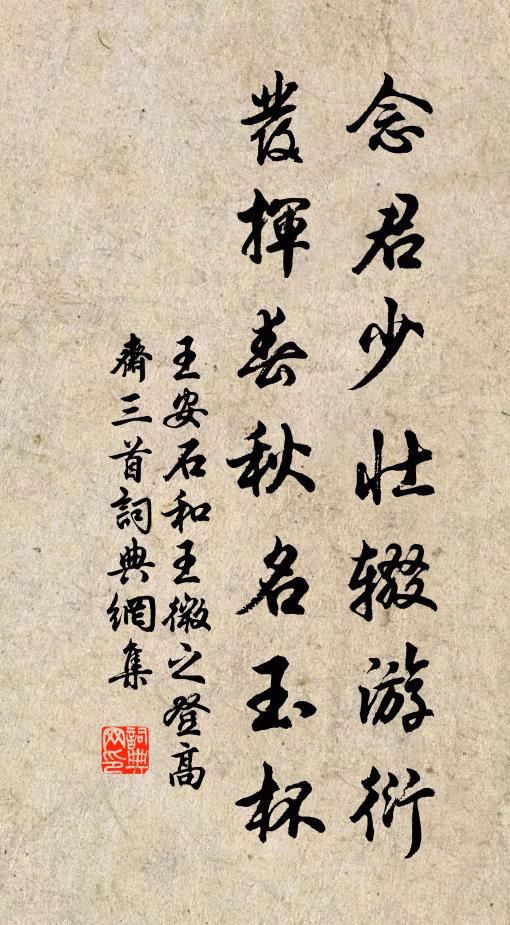 念君少壮辍游衍
發揮春秋名玉杯
王安石和王微之登高
齋三首詞典網集
詞典網印